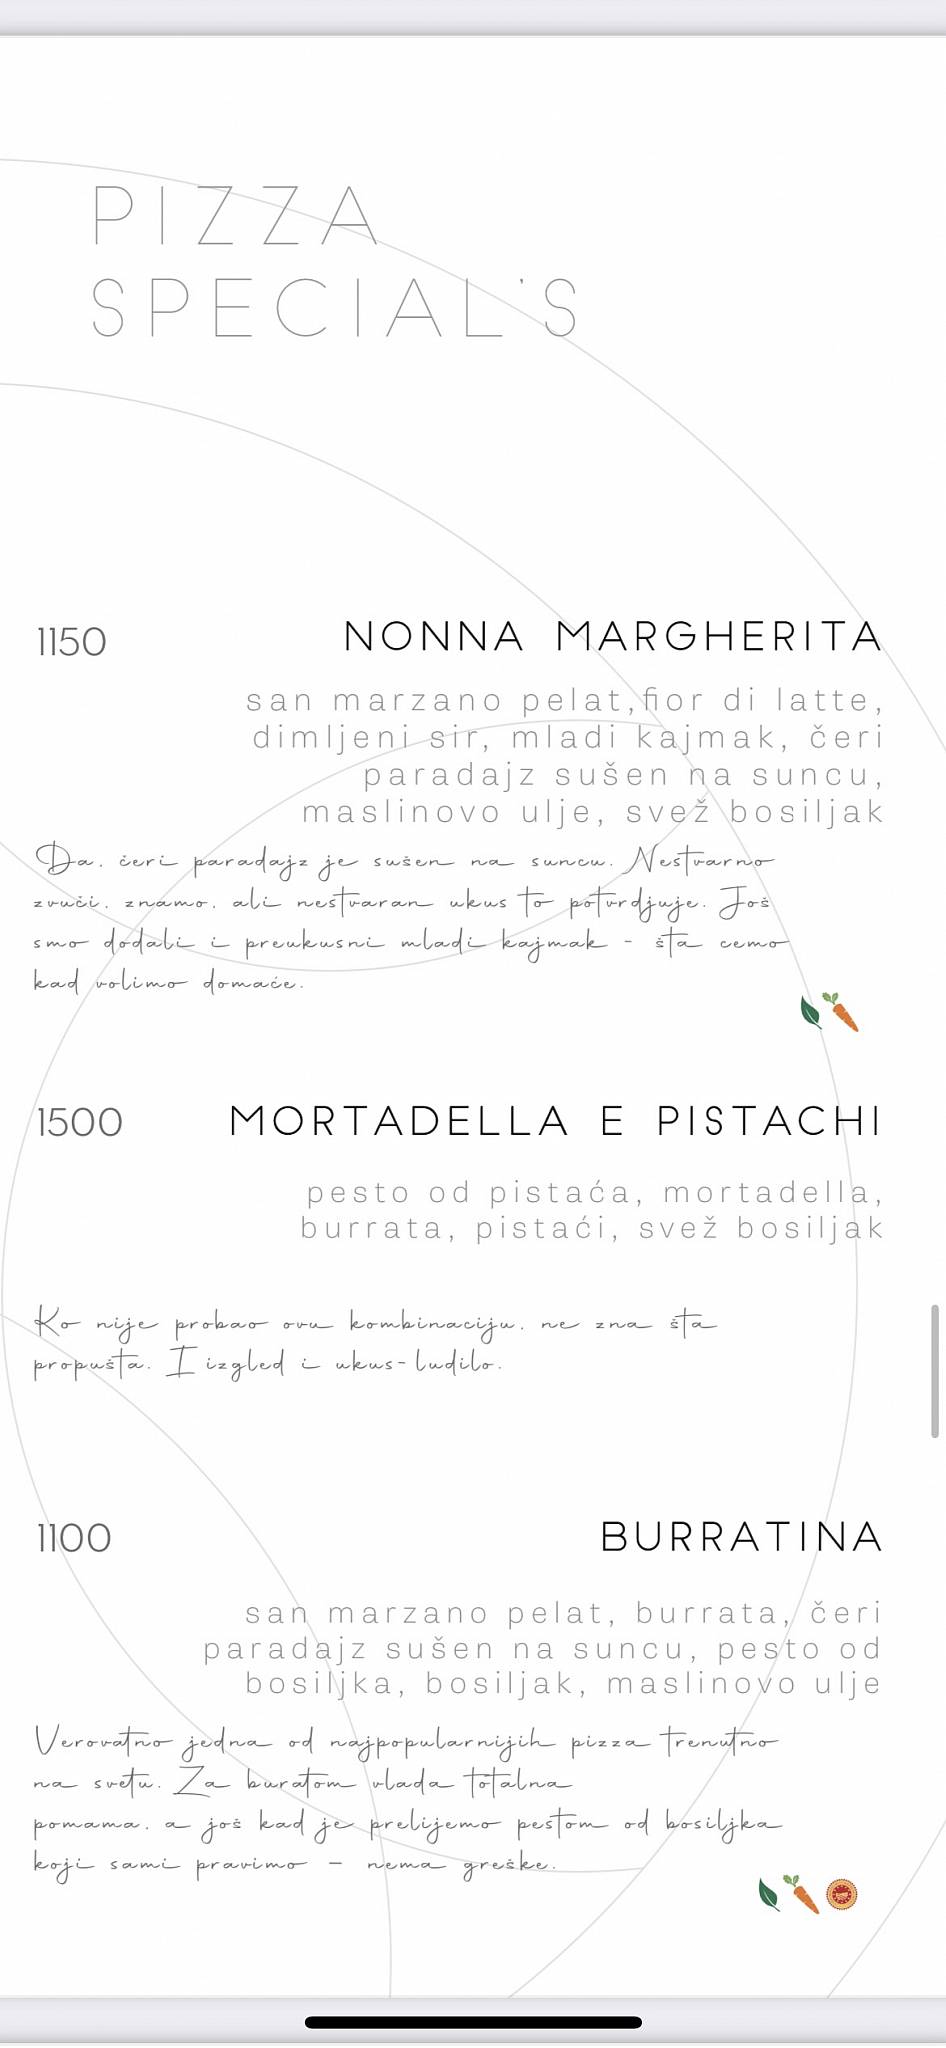 PIZZA
SPECIAL'S
1150 NONNA MARGHERITA
san marzano pelat,fior di latte,
dimljeni sir, mladi kajmak, čeri
paradajz sušen na suncu,
maslinovo ulje, svež bosiljak
Da, čeri paradajz je sušen na suncu. Nestvarno
zvuči, znamo, ali nestvaran ukus to potvrdjuje. Još
smo dodali i preukusni mladi kajmak - šta cemo
kad volimo domaće.
1500 MORTADELLA E PISTACHI
pesto od pistaća, mortadella,
burrata, pistaći, svež bosiljak
Ko nije probao ovu kombinaciju, ne zna šta
propušta. I izgled i ukus-ludilo.
1100 BURRATINA
san marzano pelat, burrata, čeri
paradajz sušen na suncu, pesto od
bosiljka, bosiljak, maslinovo ulje
Verovatno jedna od najpopularnijih pizza trenutno
na svetu. Za buratom vlada totalna
pomama, a još kad je prelijemo pestom od bosiljka
koji sami pravimo – nema greške.